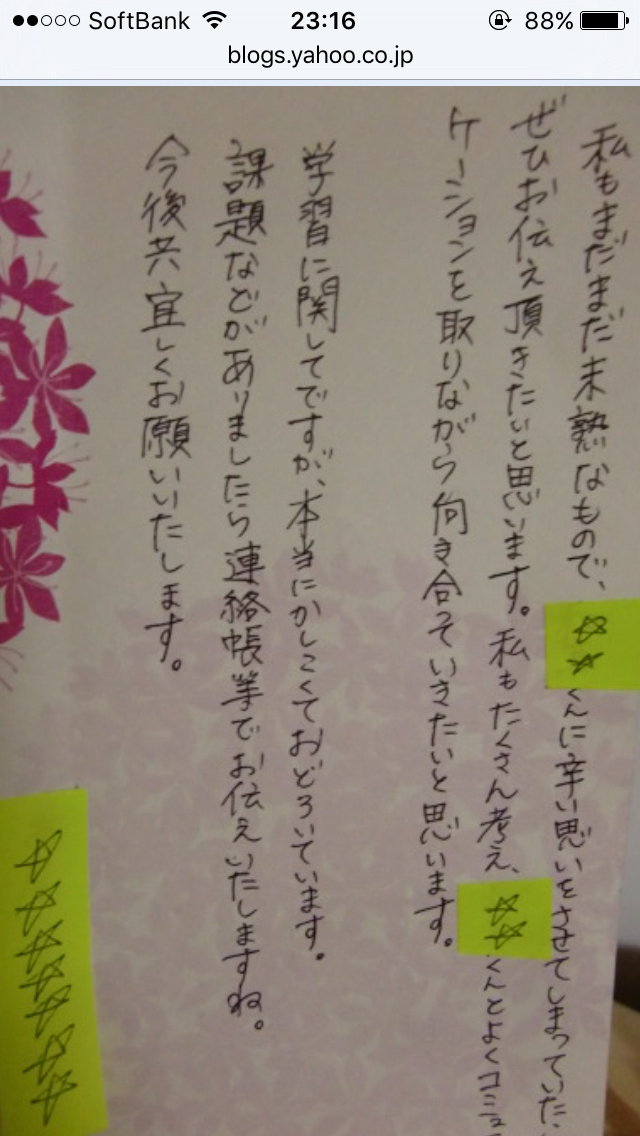 SoftBank 23:16 88%
blogs.yahoo.co.jp
私もまだまだ未熟なもので、☆☆くんに辛い思いをさせてしまっていた
ぜひお伝え頂きたいと思います。私もたくさん考え、☆☆くんとよくコミュ
ケーションを取りながら向き合っていきたいと思います。
学習に関してですが、本当にかしこくておどろいています。
課題などがありましたら連絡帳等でお伝えいたしますね。
今後共宜しくお願いいたします。
☆☆☆☆☆☆☆